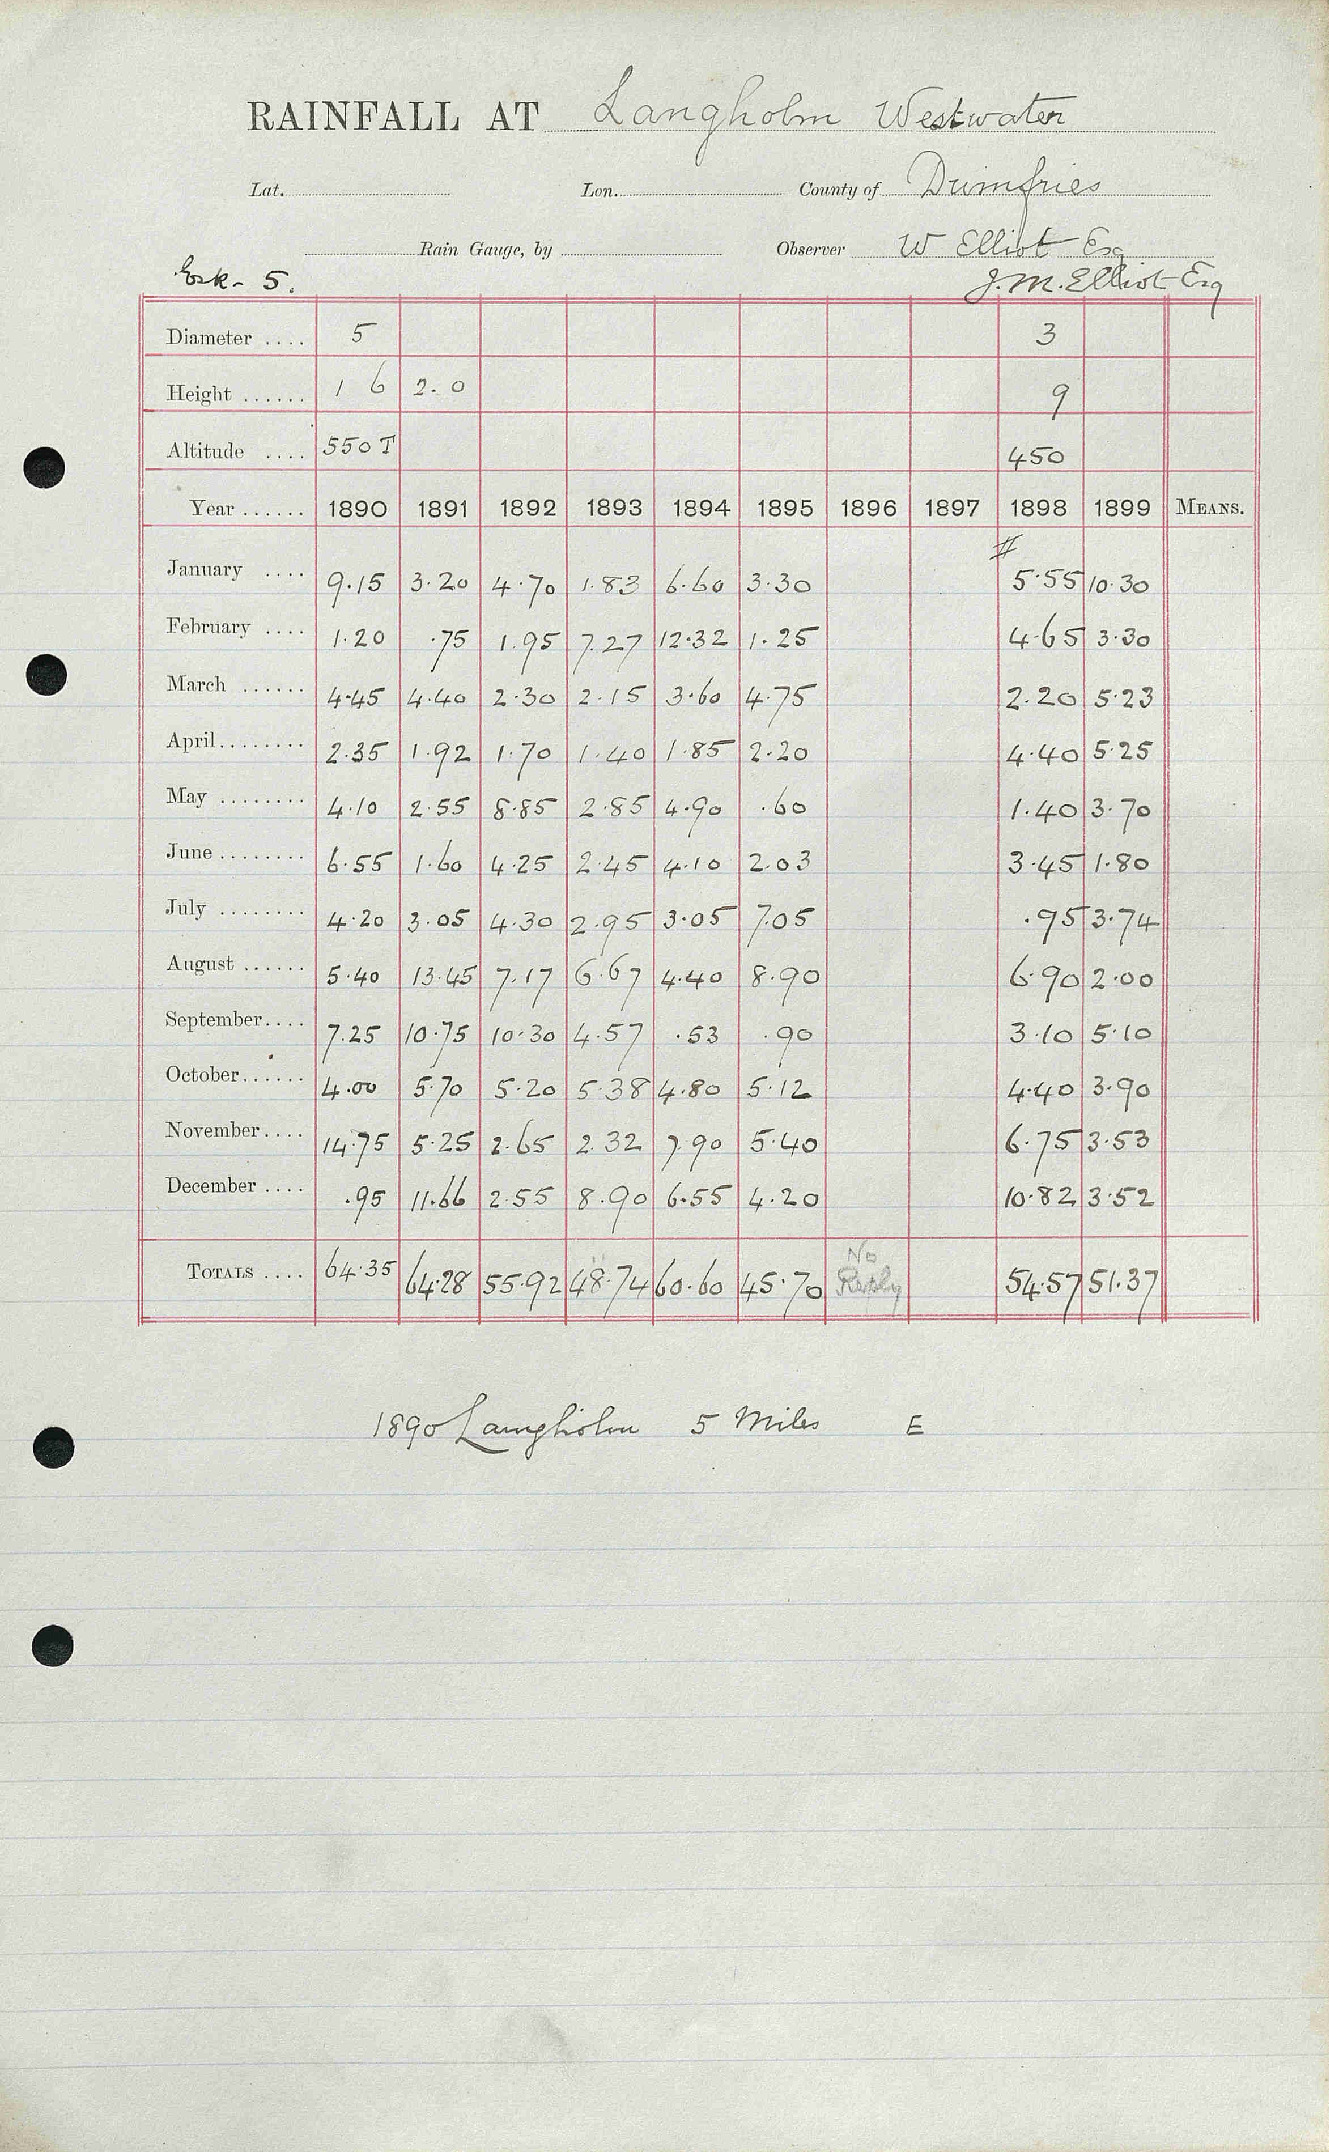 RAINFALL AT Langholm Westwater
Lat. Lon. County of Dumfries
Rain Gauge, by Observer W Elliot Esq
Esk - 5. J. M. Elliot Esq
Diameter .... 5 3
Height ...... 1 6 2.0 9
Altitude .... 550 T 450
Year ...... 1890 1891 1892 1893 1894 1895 1896 1897 1898 1899 MEANS.
#
January .... 9.15 3.20 4.70 1.83 6.60 3.30 5.55 10.30
February .... 1.20 .75 1.95 7.27 12.32 1.25 4.65 3.30
March ...... 4.45 4.40 2.30 2.15 3.60 4.75 2.20 5.23
April........ 2.35 1.92 1.70 1.40 1.85 2.20 4.40 5.25
May ........ 4.10 2.55 8.85 2.85 4.90 .60 1.40 3.70
June ........ 6.55 1.60 4.25 2.45 4.10 2.03 3.45 1.80
July ........ 4.20 3.05 4.30 2.95 3.05 7.05 .95 3.74
August ...... 5.40 13.45 7.17 6.67 4.40 8.90 6.90 2.00
September.... 7.25 10.75 10.30 4.57 .53 .90 3.10 5.10
October...... 4.00 5.70 5.20 5.38 4.80 5.12 4.40 3.90
November.... 14.75 5.25 2.65 2.32 7.90 5.40 6.75 3.53
December .... .95 11.66 2.55 8.90 6.55 4.20 10.82 3.52
TOTALS .... 64.35 64.28 55.92 48.74 60.60 45.70 No Reply 54.57 51.37
1890 Langholm 5 Miles E